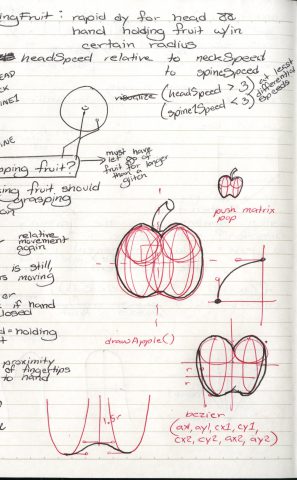 ingFruit : rapid dy for head &&
hand holding fruit w/in
certain radius
headSpeed relative to neckSpeed
to spineSpeed
EAD
CK
INE1
INE
visualize
(headSpeed > 3)
(spine1Speed < 3)
at least
differential
speeds
pping fruit?
must have
let go of
fruit for longer
than a
glitch
ing fruit should
grasping
relative
movement
again
is still,
is moving
er
if hand
closed
d = holding
t
proximity
of fingertips
to hand
push matrix
pop
drawApple()
1.5r
bezier
(ax1, ay1, cx1, cy1,
cx2, cy2, ax2, ay2)